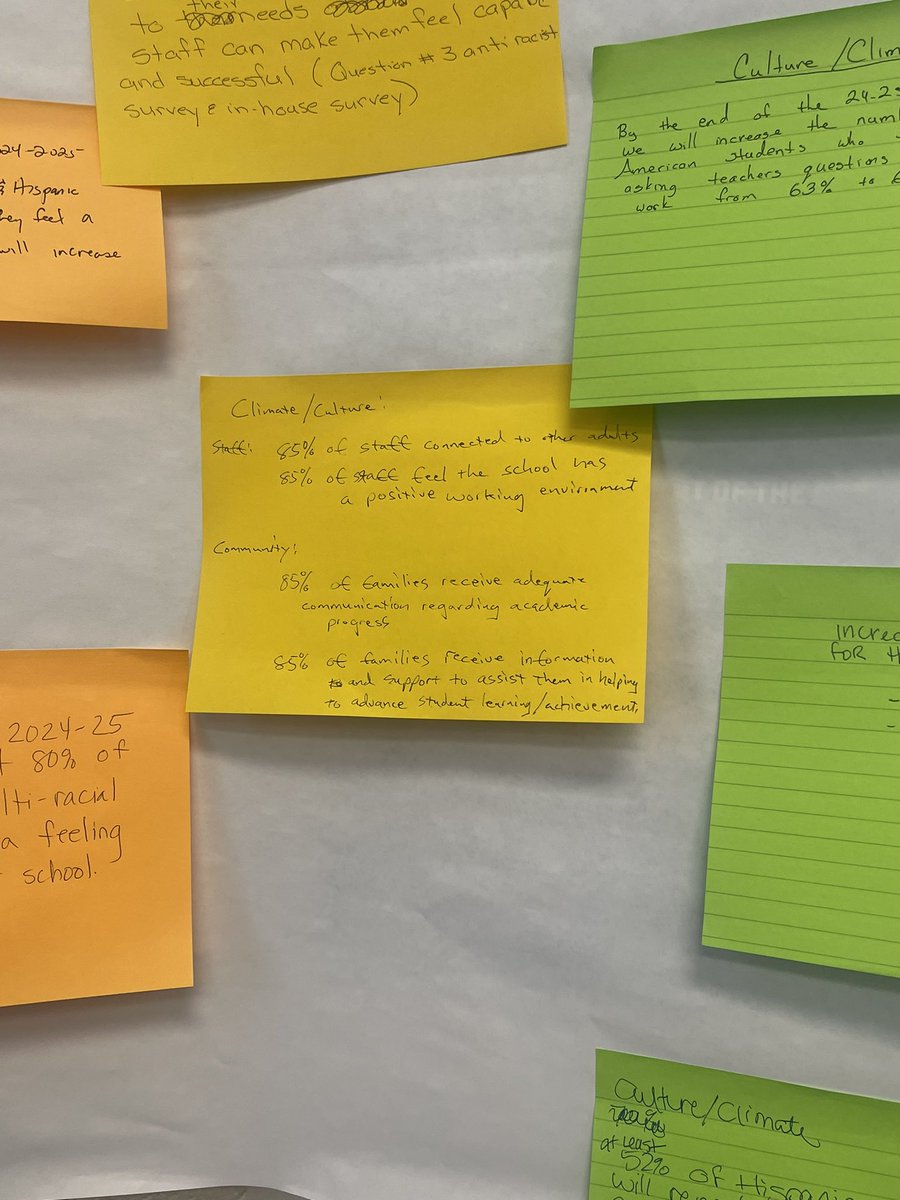 their
to needs
Staff can make them feel capable
and successful (Question #3 anti racist
survey & in-house survey)
Culture / Clim
By the end of the 24-25
we will increase the num
American students who
asking teachers questions
work from 63% to
24-2025
Hispanic
they feel a
will increase
Climate/Culture:
Staff: 85% of staff connected to other adults
85% of staff feel the school has
a positive working environment
Community:
85% of families receive adequate
communication regarding academic
progress
85% of families receive information
and support to assist them in helping
to advance student learning/achievement.
2024-25
80% of
lti-racial
a feeling
school.
increa
FOR H
-
-
Culture/Climate
at least
52% of Hispani
will